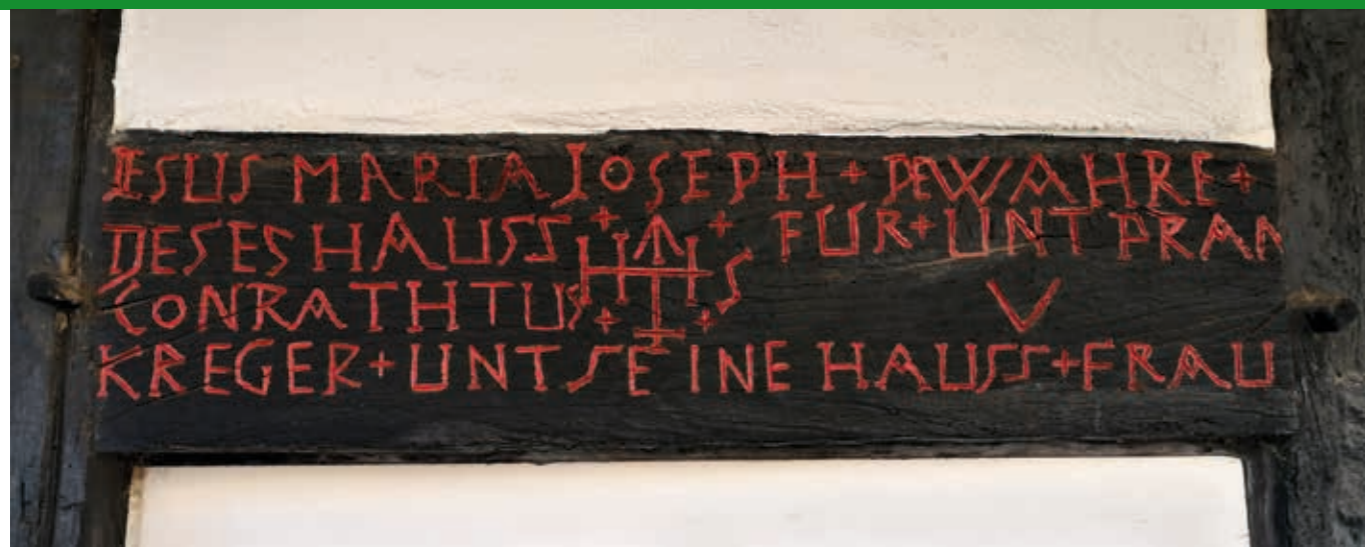 JESUS MARIA JOSEPH + PEWAHRE +
DESES HAUSS + + FUR + UNT PRAN
CONRATH TUS IHS V
KREGER + UNT SEINE HAUSS + FRAU